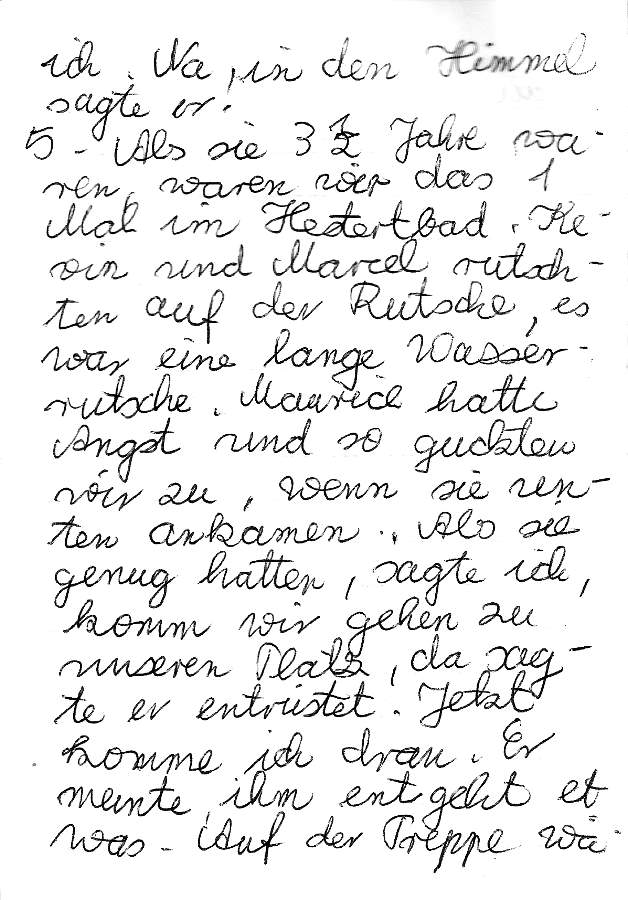 ich. Na, in den Himmel
sagte er.
5 - Als sie 3 1/2 Jahre wa-
ren, waren wir das 1
Mal im Hestertbad. Ke-
vin und Marcel rutsch-
ten auf der Rutsche, es
war eine lange Wasser-
rutsche. Maurice hatte
Angst und so guckten
wir zu, wenn sie un-
ten ankamen. Als sie
genug hatten, sagte ich,
komm wir gehen zu
unseren Platz, da sag-
te er entrüstet. Jetzt
komme ich dran. Er
meinte, ihm entgeht et
was - Auf der Treppe wä-